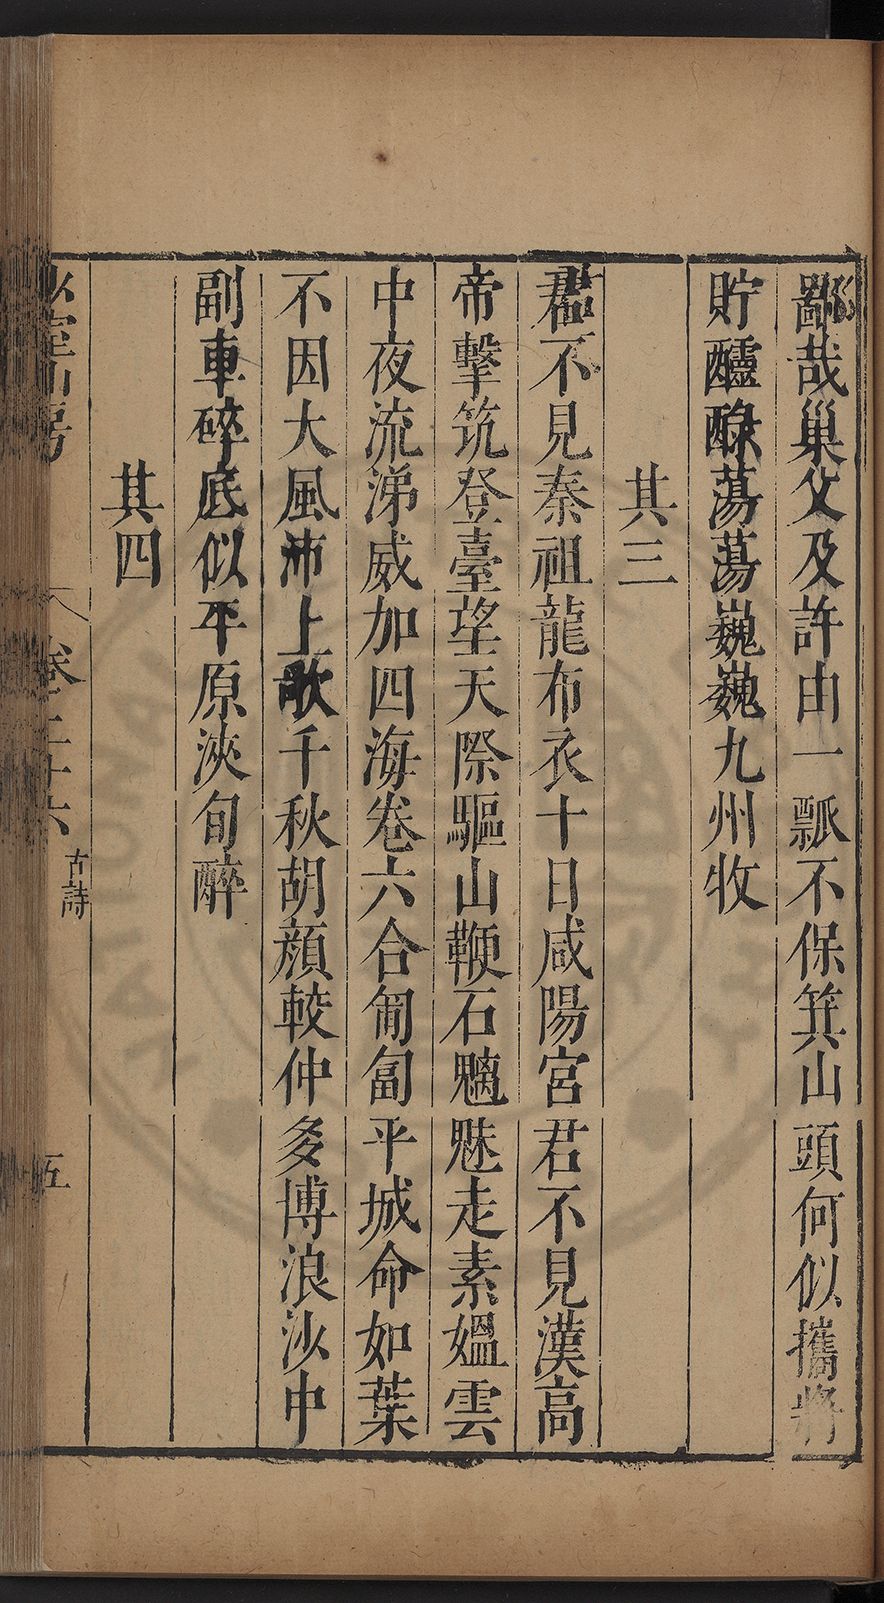 鄙哉巢父及許由一瓢不保箕山頭何似攜將
貯醽醁蕩蕩巍巍九州牧
其三
君不見秦祖龍布衣十日咸陽宮君不見漢高
帝擊筑登臺望天際驅山鞭石魑魅走素媼雲
中夜流涕威加四海卷六合匍匐平城命如葉
不因大風沛上歌千秋胡顏較仲多博浪沙中
副車碎底似平原浹旬醉
其四
少室山房
卷二十六
古詩
五